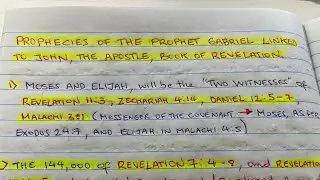 PROPHECIES OF THE PROPHET GABRIEL LINKED
TO JOHN, THE APOSTLE, BOOK OF REVELATION.
1) MOSES AND ELIJAH, WILL BE THE "TWO WITNESSES" OF
REVELATION 11:3, ZECHARIAH 4:14, DANIEL 12:5-7
MALACHI 3:1 (MESSENGER OF THE COVENANT → MOSES, AS PER
EXODUS 24:7, AND ELIJAH IN MALACHI 4:5)
THE 144,000 OF REVELATION 7:4-8, AND REVELATION